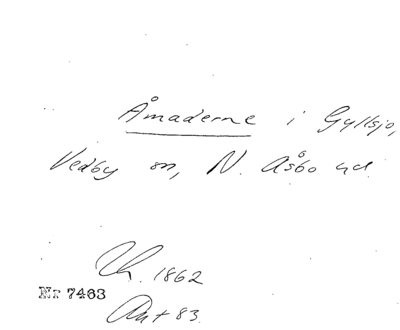 Åmaderne i Gyllsjö,
Vedby sn, N. Åsbo hd.
Uh. 1862
Nr 7463
Ant 83.